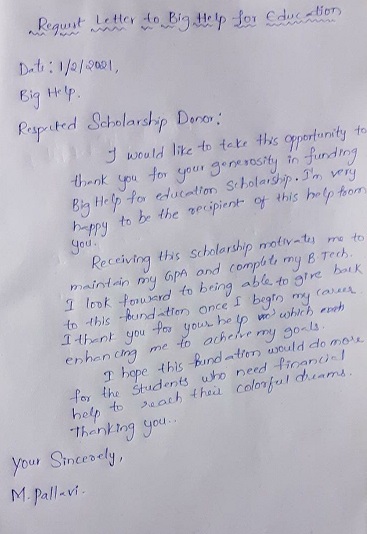 Request Letter to Big Help for Education
Date: 1/2/2021,
Big Help.
Respected Scholarship Donor:
I would like to take this opportunity to
thank you for your generosity in funding
Big Help for education Scholarship. I'm very
happy to be the recipient of this help from
you.
Receiving this scholarship motivates me to
maintain my GPA and complete my B Tech.
I look forward to being able to give back
to this foundation once I begin my career
I thank you for your help which
enhancing me to acheive my goals.
I hope this fundation would do more
for the students who need financial
help to reach their colorful dreams.
Thanking you..
Your Sincerely,
M. Pallavi.